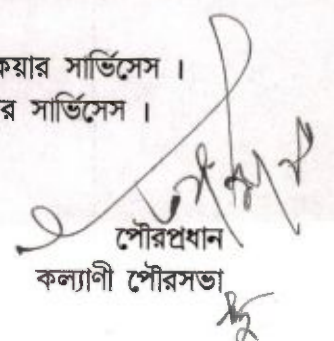 কেয়ার সার্ভিসেস ।
র সার্ভিসেস ।
পৌরপ্রধান
কল্যাণী পৌরসভা